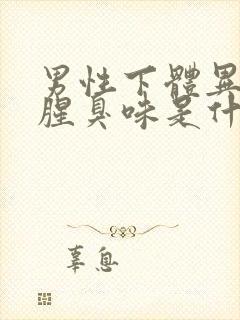 男性下體異
腥臭味是什
辜息